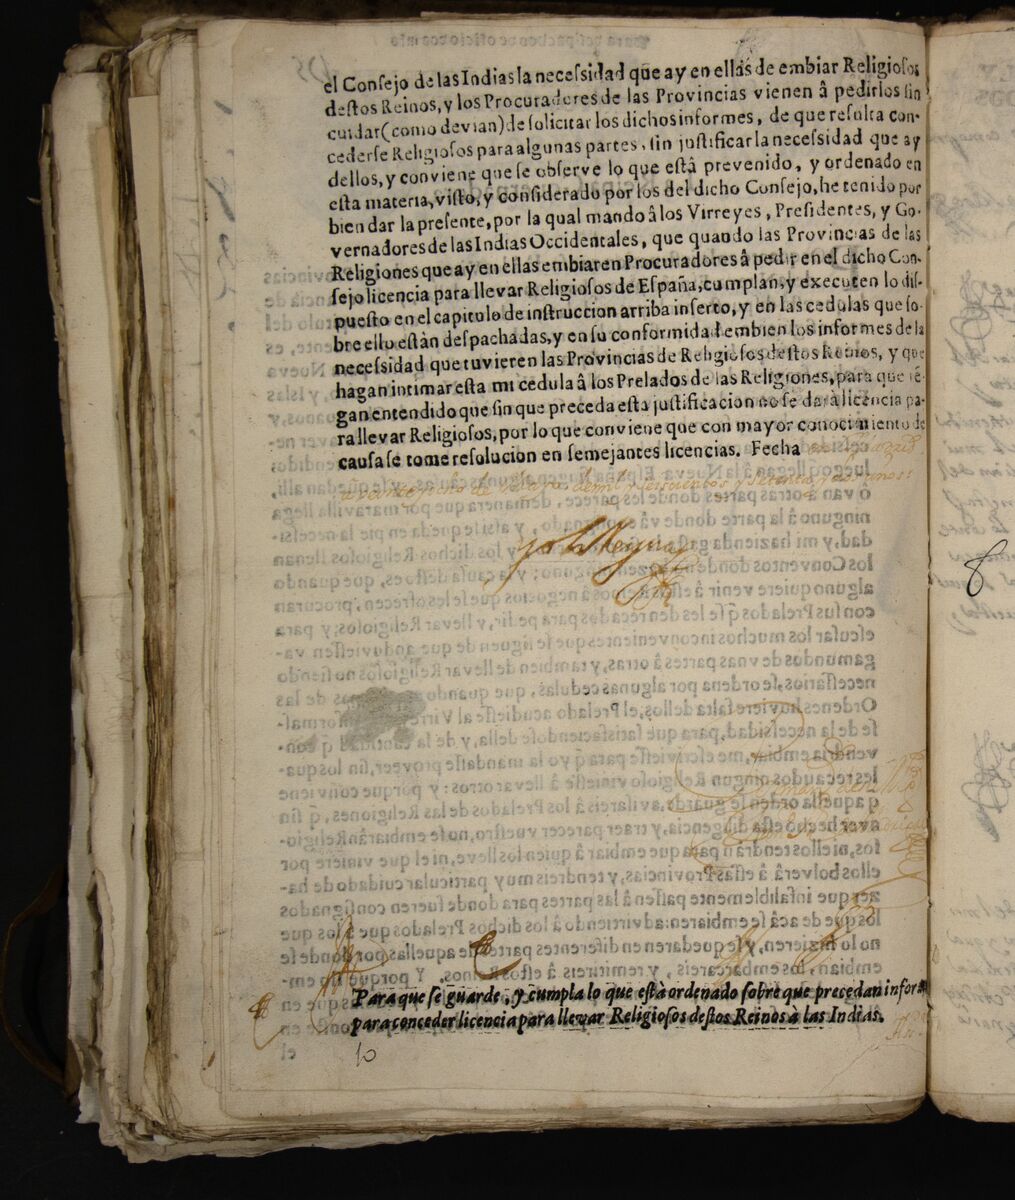 el Consejo de las Indias la necessidad que ay en ellas de embiar Religiosos
destos Reinos, y los Procuradores de las Provincias vienen â pedirlos sin
cuidar (como devian) de solicitar los dichos informes, de que resulta con-
cederse Religiosos para algunas partes, sin justificar la necessidad que ay
dellos, y conviene que se observe lo que estâ prevenido, y ordenado en
esta materia, visto, y considerado por los del dicho Consejo, he tenido por
bien dar la presente, por la qual mando â los Virreyes, Presidentes, y Go-
vernadores de las Indias Occidentales, que quando las Provincias de las
Religiones que ay en ellas embiaren Procuradores â pedir en el dicho Con-
sejo licencia para llevar Religiosos de España, cumplan, y executen lo dis-
puesto en el capitulo de instruccion arriba inserto, y en las cedulas que so-
bre ello estàn despachadas, y en su conformidad embien los informes de la
necessidad que tuvieren las Provincias de Religiosos destos Reinos, y que
hagan intimar esta mi cedula â los Prelados de las Religiones, para que tē-
gan entendido que sin que preceda esta justificacion no se darà licencia pa-
ra llevar Religiosos, por lo que conviene que con mayor conocimiento de
causa se tome resolucion en semejantes licencias. Fecha en
a veinte y ocho de de mil y seiscientos y setenta y dos años.
yo la Reyna
Para que se guarde, y cumpla lo que està ordenado sobre que precedan infor
para conceder licencia para llevar Religiosos destos Reinos à las Indias.
10